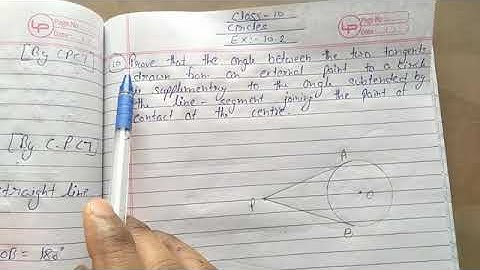 Class-10
Circles
Ex:- 10.2
[By CPCT]
10 Prove that the angle between the two tangents
drawn from an external point to a circle
is supplementry to the angle subtended by
the line-segment joining the point of
contact at the centre.
[By C.P.C.T]
straight line
OB = 180°
A
P
O
B